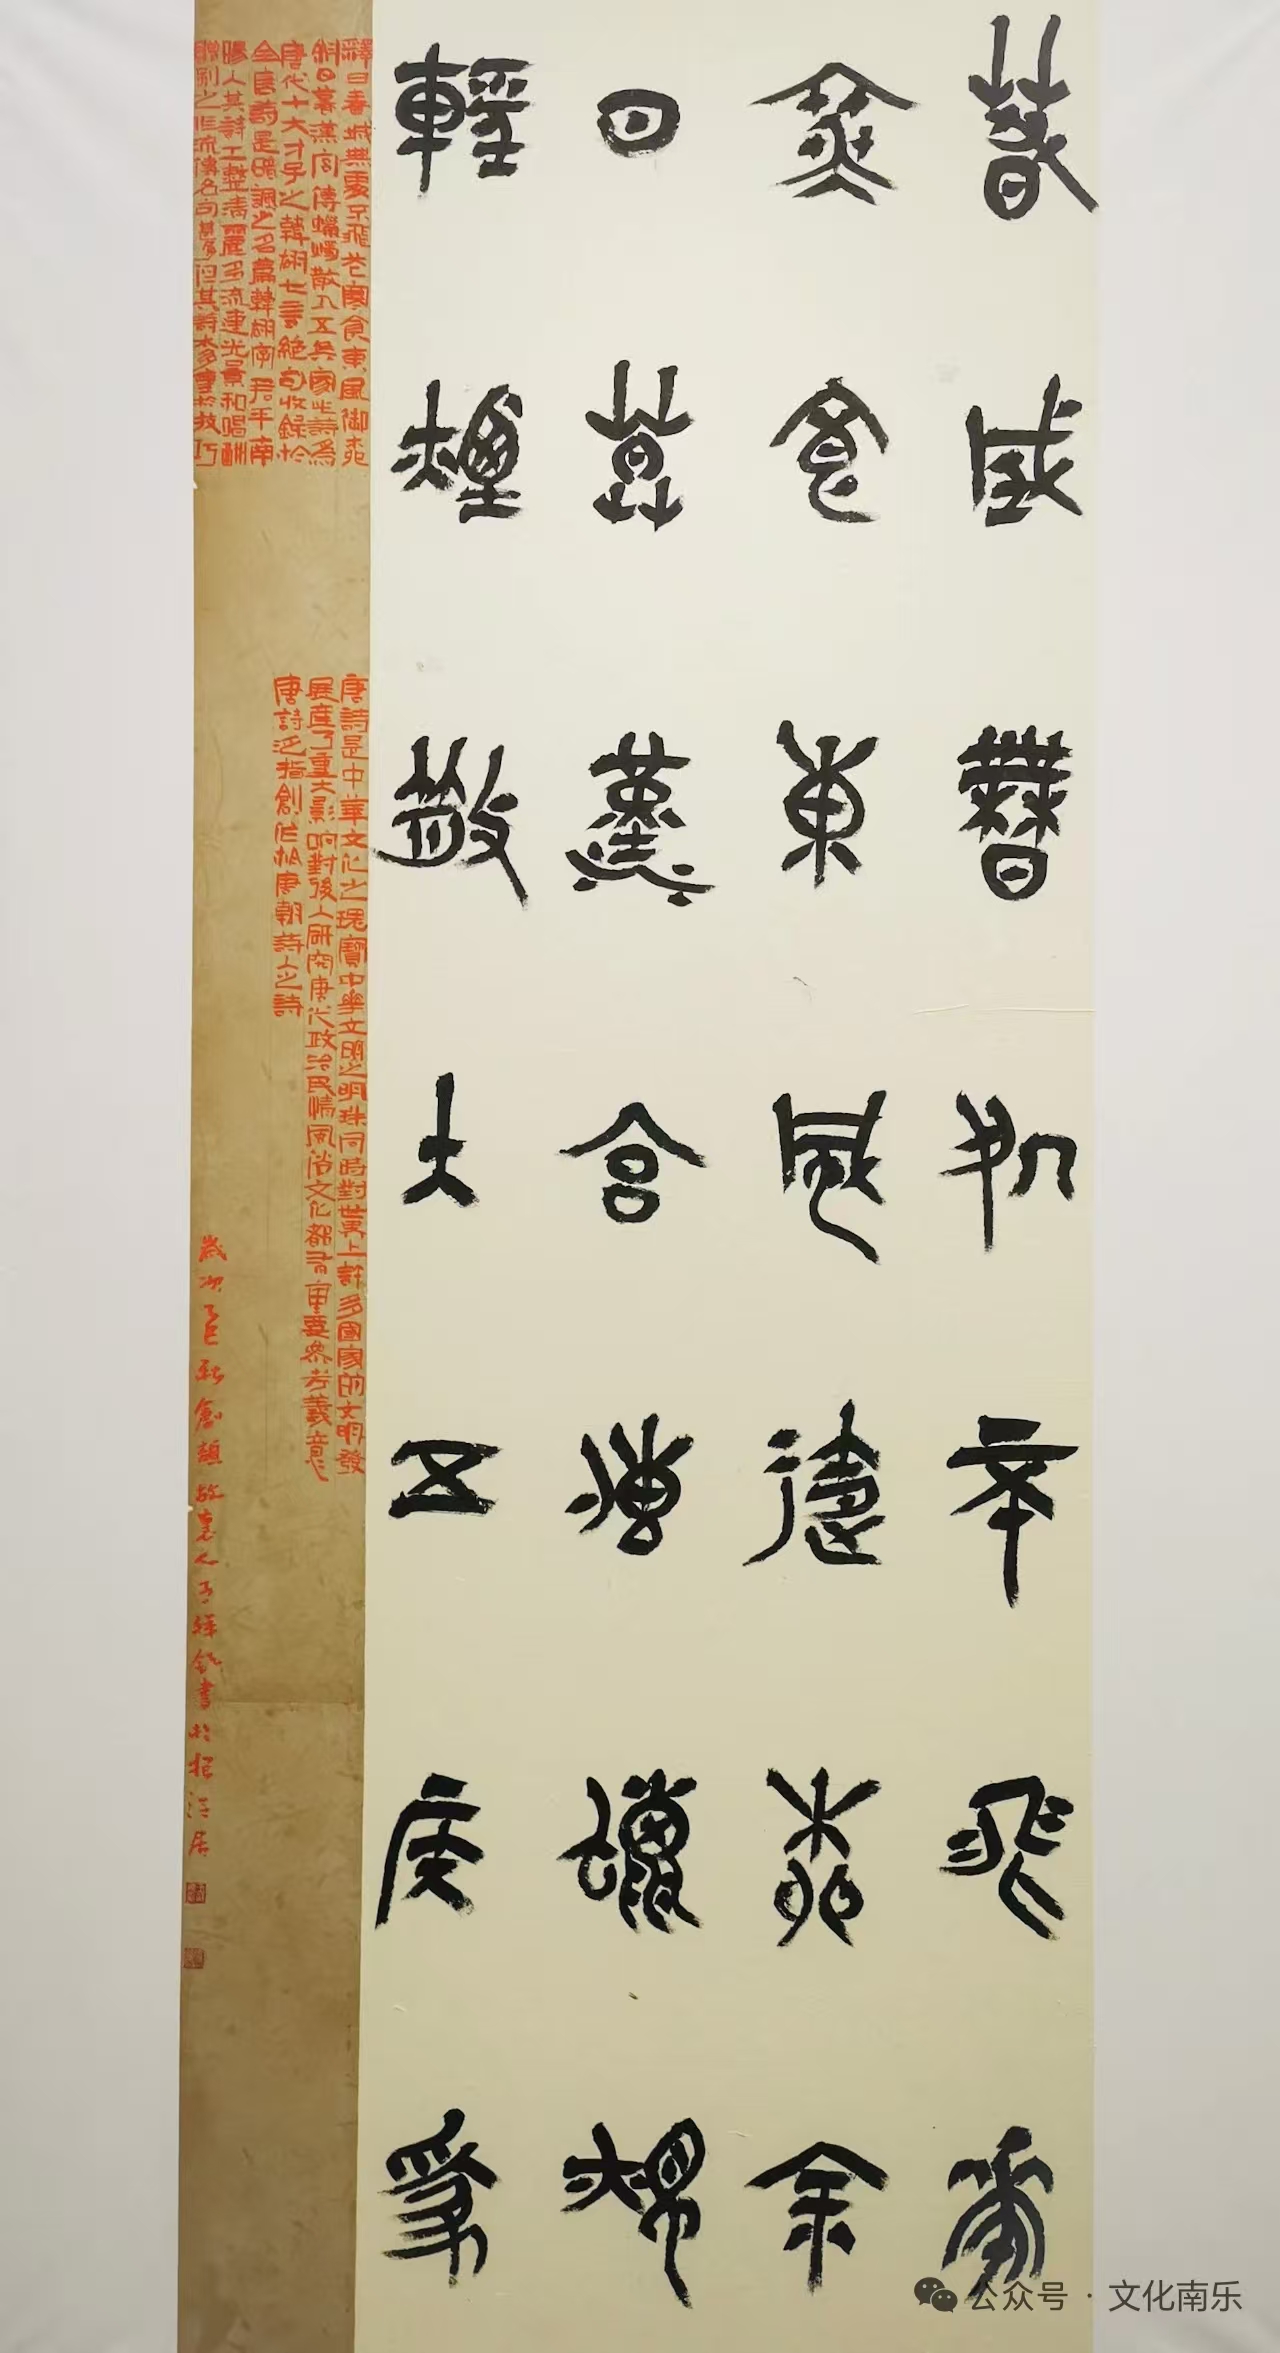 春城無處不飛花
寒食東風御柳斜
日暮漢宮傳蠟燭
輕煙散入五侯家
釋曰春城無處不飛花寒食東風御柳
斜日暮漢宮傳蠟燭散入五侯家此詩為
唐代十大才子之韓翃七言絕句收錄於
全唐詩是暗諷之名篇韓翃字君平南
陽人其詩工整清麗多流連光景和唱酬
贈別之作流傳名句甚多但其詩太多重於技巧
唐詩是中華文化之瑰寶中華文明之明珠同時對世界上許多國家的文明發
展產了重大影响對後人研究唐代政治民情風俗文化都有重要參考義意
唐詩泛指創作於唐朝詩人之詩
歲次乙巳秋
書於
居
公众号·文化南乐